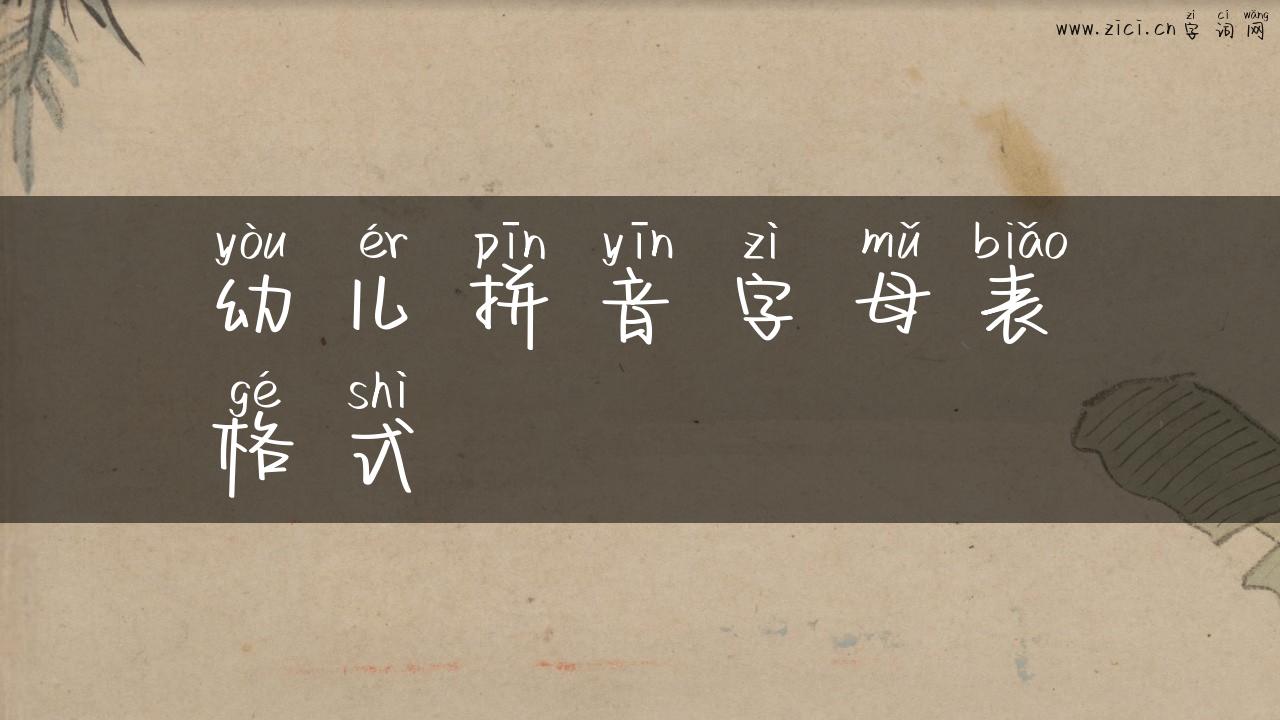 zì cí wǎng
www.zici.cn 字 词 网
yòu ér pīn yīn zì mǔ biǎo
幼 儿 拼 音 字 母 表
gé shì
格 式